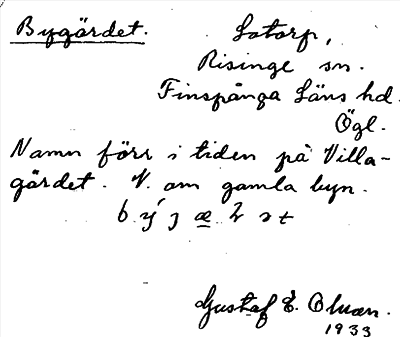 Bygärdet.
Lotorp,
Risinge sn.
Finspånga Läns hd.
Ögl.
Namn förr i tiden på Villa-
gärdet. V. om gamla byn.
Gustaf E. Olsson.
1933